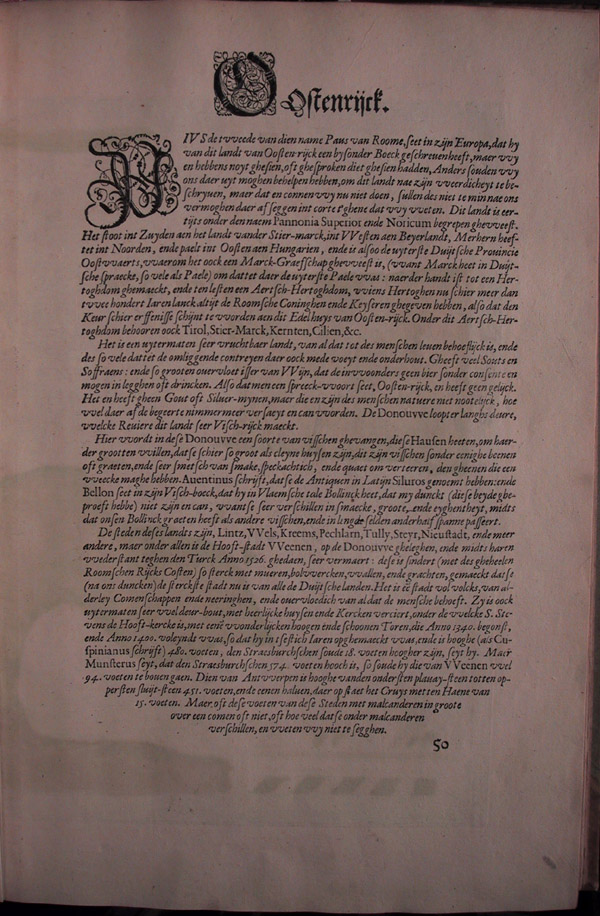 Oostenrijck.
PIVS de tvveede van dien name Paus van Roome, seet in zijn Europa, dat hy
van dit landt van Oosten-rijck een bysonder Boeck geschreuen heeft, maer vvy
en hebbens noyt ghesien, oft ghesproken diet ghesien hadden, Anders souden vvy
ons daer uyt moghen behelpen hebben, om dit landt nae zijn vveerdicheyt te be-
schryuen, maer dat en connen vvy nu niet doen, sullen des niet te min nae ons
vermoghen daer af seggen int corte t'ghene dat vvy vveten. Dit landt is eer-
tijts onder den naem Pannonia Superior ende Noricum begrepen ghevveest.
Het stoot int Zuyden aen het landt vander Stier-marck, int VVesten aen Beyerlandt, Merhern heef-
tet int Noorden, ende paelt int Oosten aen Hungarien, ende is alsoo de uyterste Duijtsche Prouincie
Oostvvaerts, vvaerom het oock een Marck-Graefschap ghevveest is, (vvant Marck heet in Duijt-
sche spraecke, so vele als Paele) om dattet daer de uyterste Paele vvas: naerder handt ist tot een Her-
toghdom ghemaeckt, ende ten lesten een Aertsch-Hertoghdom, vviens Hertoghen nu schier meer dan
tvvee hondert Iaren lanck altijt de Roomsche Coninghen ende Keyseren ghegeven hebben, also dat den
Keur schier erffenisse schijnt te vvorden aen dit Edel huys van Oosten-rijck. Onder dit Aertsch-Her-
toghdom behooren oock Tirol, Stier-Marck, Kernten, Cilien, &c.
Het is een uytermaten seer vruchtbaer landt, van al dat tot des menschen leuen behoeflijck is, ende
des so vele dat iet de omliggende contreyen daer oock mede voeyt ende onderhout. Gheeft veel Souts en
Soffraens: ende so grooten ouervloet isser van VVijn, dat de invvoonders geen bier sonder consente en
mogen in legghen oft drincken. Also dat men een spreeck-vvoort seet, Oosten-rijck, en heeft geen gelijck.
Het en heeft gheen Gout oft Siluer-mynen, maer die en zijn des menschen natuere niet nootelijck, hoe
vvel daer af de begeerte nimmermeer versaeyt en can vvorden. De Donouvve loopter langhs deure,
vvelcke Reuiere dit landt seer Visch-rijck maeckt.
Hier vvordt in dese Donouvve een soorte van visschen ghevangen, die se Hausen heeten, om haer-
der grootten vvillen, dat se schier so groot als cleyne huysen zijn, dit zijn visschen sonder eenighe beenen
oft graeten, ende seer smetsch van smake, speckachtich, ende quaet om verteeren, den gheenen die een
vveecke maghe hebben. Auentinus schrijft, dat se de Antiquen in Latijn Siluros genoemt hebben: ende
Bellon seet in zijn Visch-boeck, dat hy in Vlaemsche tale Bollinck heet, dat my dunckt (die se beyde ghe-
proeft hebbe) niet zijn en can, vvant se seer verschillen in smaecke, groote, ende eyghentheyt, midts
dat onsen Bollinck graeten heeft als andere visschen, ende in lengde selden anderhalf spanne passeert.
De steden deses landts zijn, Lintz, VVels, Kreems, Pechlarn, Tully, Steyr, Nieustadt, ende meer
andere, maer onder allen is de Hooft-stadt VVeenen, op de Donouvve gheleghen, ende midts haren
vvederstant teghen den Turck Anno 1526. ghedaen, seer vermaert: dese is sindert (met des gheheelen
Roomschen Rijcks Costen) so sterck met mueren, bolvvercken, vvallen, ende grachten, gemaeckt dat se
(na ons duncken) de sterckste stadt nu is van alle de Duijtsche landen. Het is eē stadt vol volcks, van al-
derley Comenschappen ende neeringhen, ende ouervloedich van al dat de mensche behoeft. Zy is oock
uytermaten seer vvel deur-bout, met heerlijcke huysen ende Kercken verciert, onder de vvelcke S. Ste-
vens de Hooft-kercke is, met eenē vvonderlijcken hoogen ende schoonen Toren, die Anno 1340. begonst,
ende Anno 1400. voleyndt vvas, so dat hy in tsestich Iaren opghemaeckt vvas, ende is hooghe (als Cu-
spinianus schrijft) 480. voeten, den Straesburchschen soude 18. voeten hoogher zijn, seyt hy. Maer
Munsterus seyt, dat den Straesburchschen 574. voeten hooch is, so soude hy die van VVeenen vvel
94. voeten te bouen gaen. Dien van Antvverpen is hooghe vanden ondersten plauay-steen totten op-
persten sluijt-steen 451. voeten, ende eenen haluen, daer op staet het Cruys metten Haene van
15. voeten. Maer, oft dese voeten van dese Steden met malcanderen in groote
over een comen oft niet, oft hoe veel dat se onder malcanderen
verschillen, en vveten vvy niet te segghen.
50